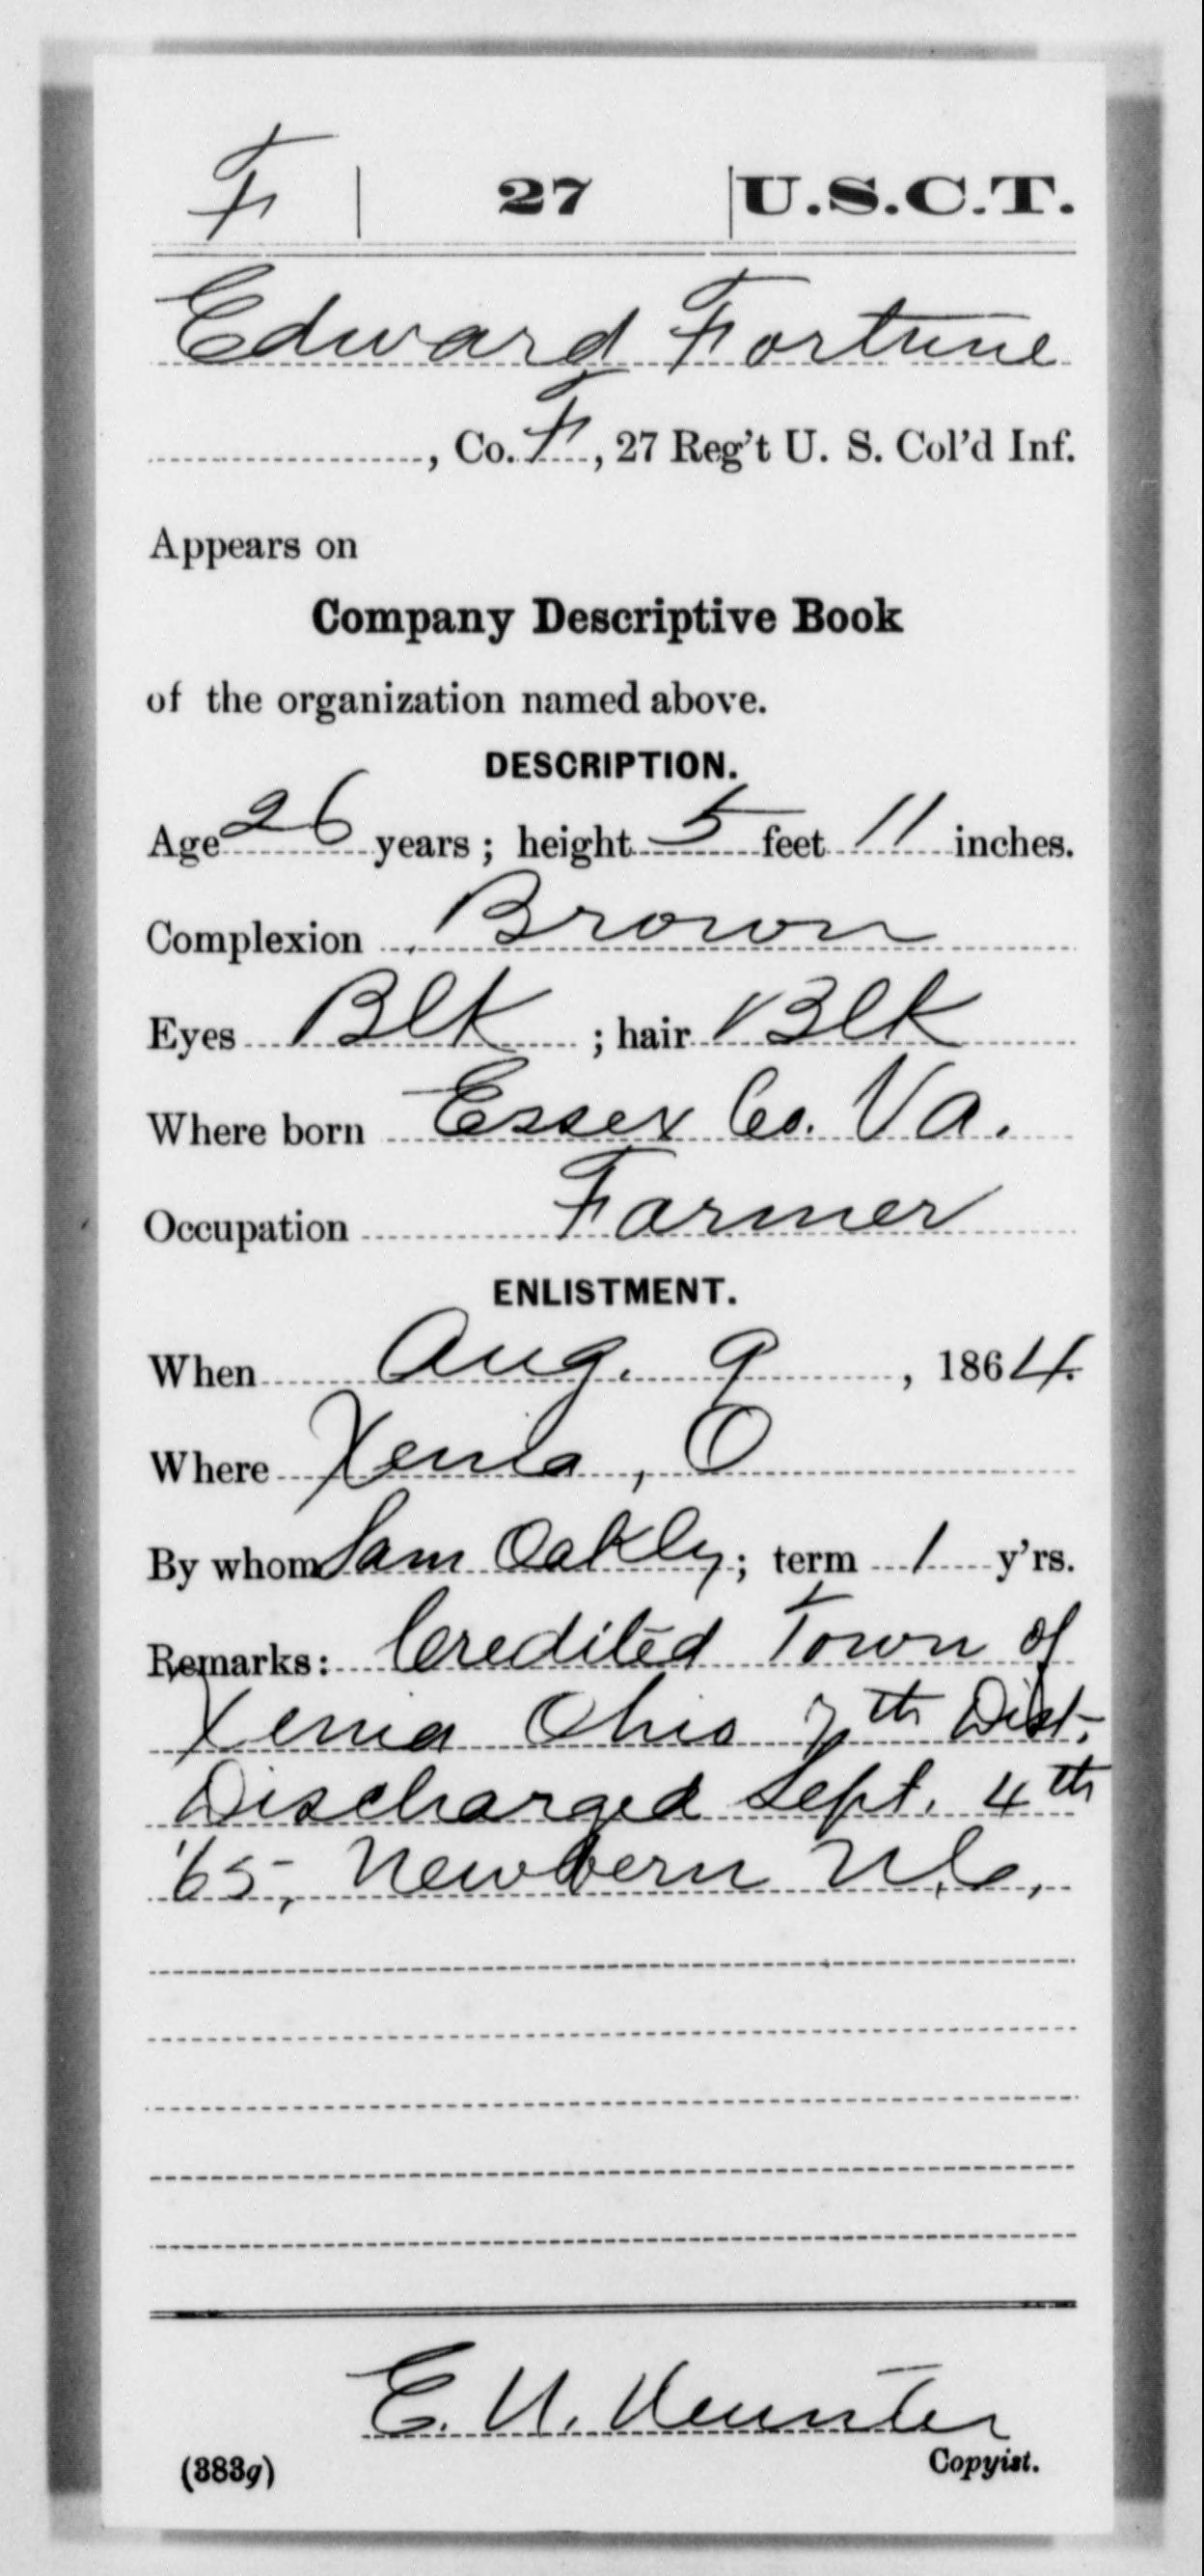 F | 27 | U.S.C.T.
Edward Fortune
, Co. F, 27 Reg't U. S. Col'd Inf.
Appears on
Company Descriptive Book
of the organization named above.
DESCRIPTION.
Age 26 years; height 5 feet 11 inches.
Complexion Brown
Eyes Blk ; hair Blk
Where born Essex Co. Va.
Occupation Farmer
ENLISTMENT.
When Aug. 9, 1864.
Where Xenia, O
By whom Sam Oakly; term 1 y'rs.
Remarks: Credited Town of
Xenia Ohio 7th Dist.
Discharged Sept. 4th
'65, Newbern N.C.,
E.
(383g)
Copyist.